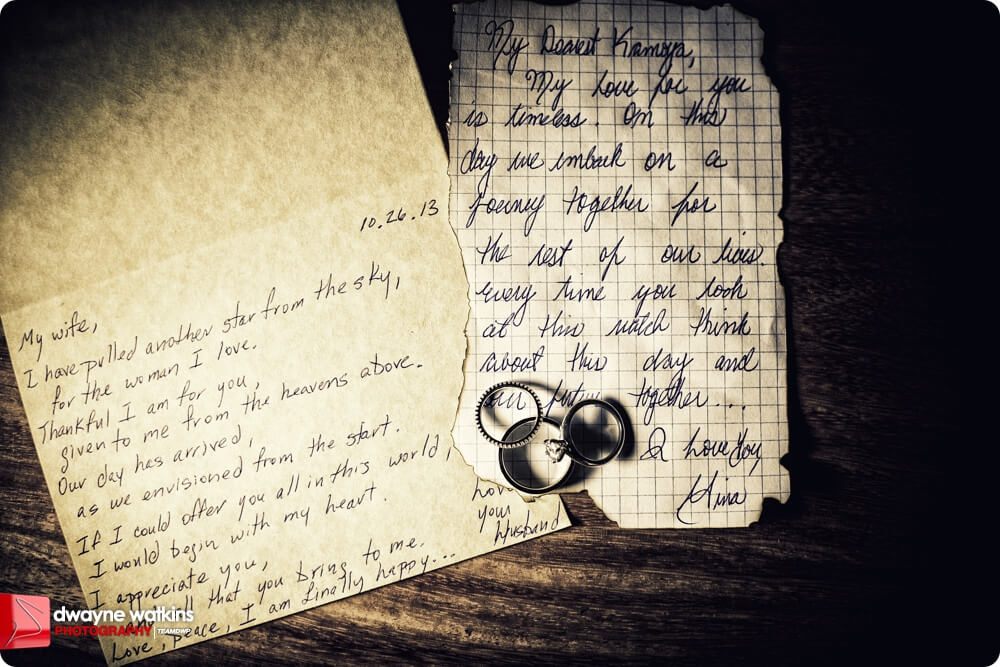 10.26.13
My wife,
I have pulled another star from the sky,
for the woman I love.
Thankful I am for you,
given to me from the heavens above.
Our day has arrived,
as we envisioned from the start.
If I could offer you all in this world,
I would begin with my heart.
I appreciate you,
all that you bring to me.
Love, peace, I am finally happy...
Love
your
Husband
My Dearest Kamoya,
My Love for you
is timeless. On this
day we embark on a
journey together for
the rest of our lives.
Every time you look
at this watch think
about this day and
our future together...
I Love You
Gina
dwayne watkins
PHOTOGRAPHY | TEAMDWP